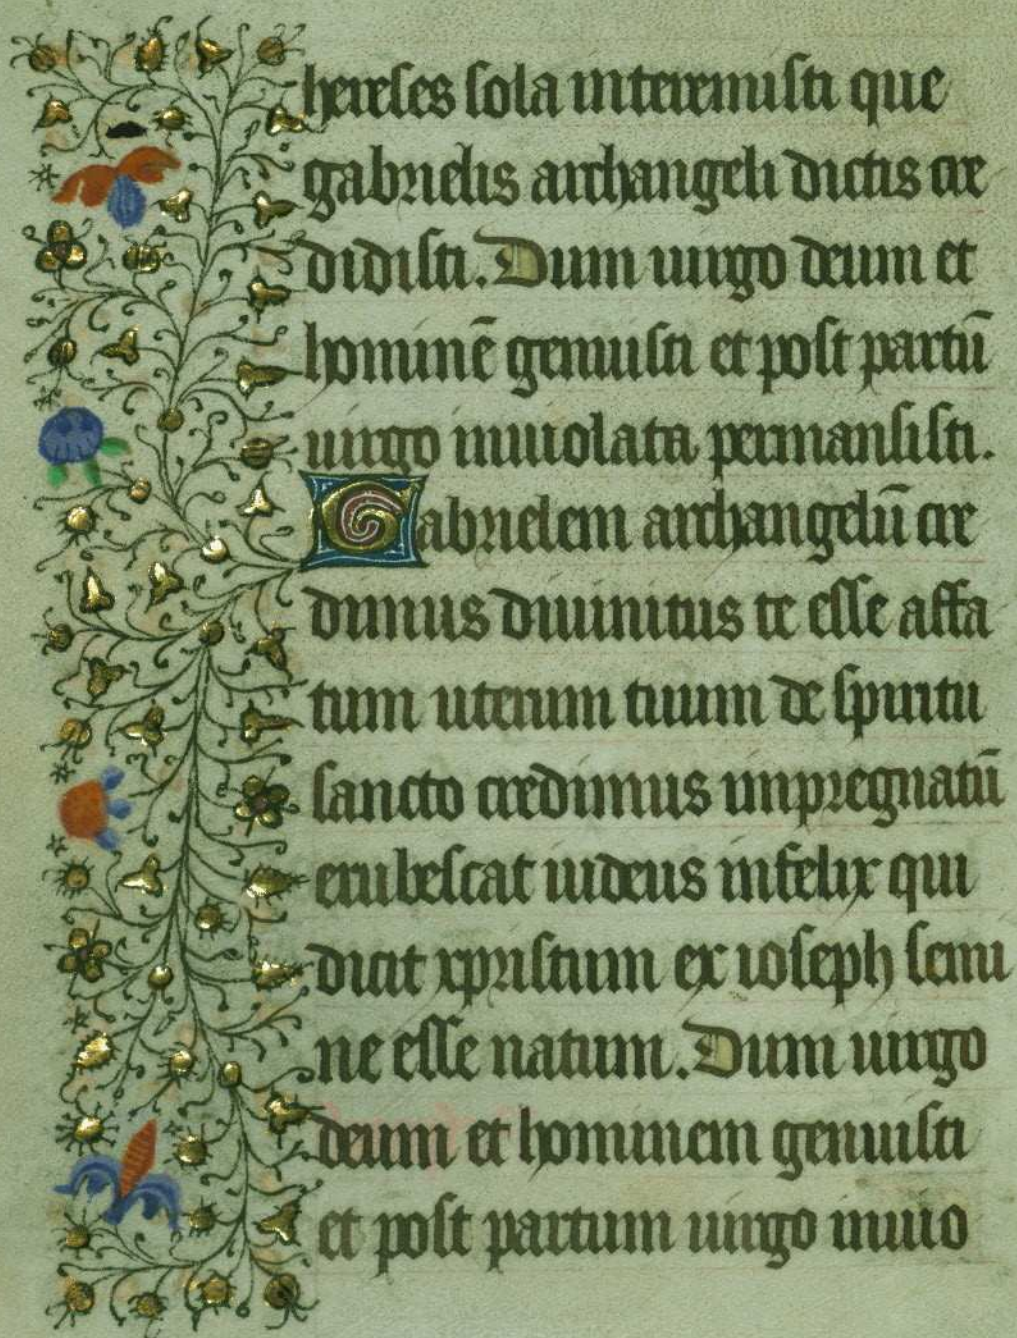 hereſes ſola interemiſti que
gabrielis archangeli dictis cre
didiſti. Dum uirgo deum et
hominē genuiſti et poſt partū
uirgo inuiolata permanſiſti.
Gabrielem archangelū cre
dimus diuinitus te eſſe affa
tum uterum tuum de ſpiritu
ſancto credimus impregnatū
erubeſcat iudeus infelix qui
dicit xpriſtum ex ioſeph ſemi
ne eſſe natum. Dum uirgo
deum et hominem genuiſti
et poſt partum uirgo inuio